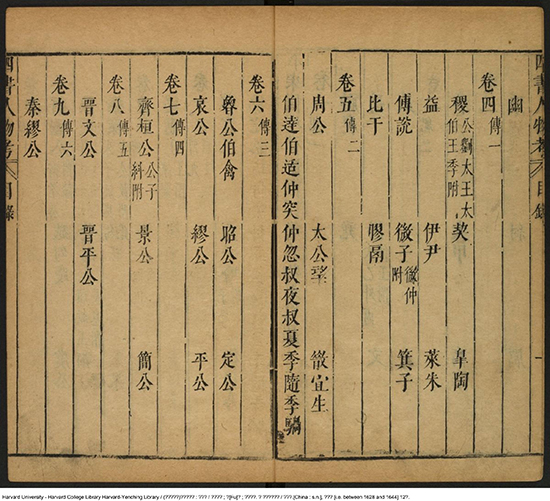 四書人物考 目錄 一
幽
卷四 傳一
稷 公劉太王太伯王季附 契 皋陶
益 伊尹 萊朱
傅說 微子 微仲附 箕子
比干 膠鬲
卷五 傳二
周公 太公望 散宜生
伯達伯适仲突仲忽叔夜叔夏季隨季騧
卷六 傳三
魯公伯禽 昭公 定公
哀公 繆公 平公
卷七 傳四
齊桓公 公子糾附 景公 簡公
卷八 傳五
晉文公 晉平公
卷九 傳六
秦繆公
四書人物考 目錄
Harvard University - Harvard College Library Harvard-Yenching Library / (?????)????? : ??? / ???? ; ?[Hu]? ; ????. ? ?????? / ???.[China : s.n.], ??? [i.e. between 1628 and 1644] 12?.